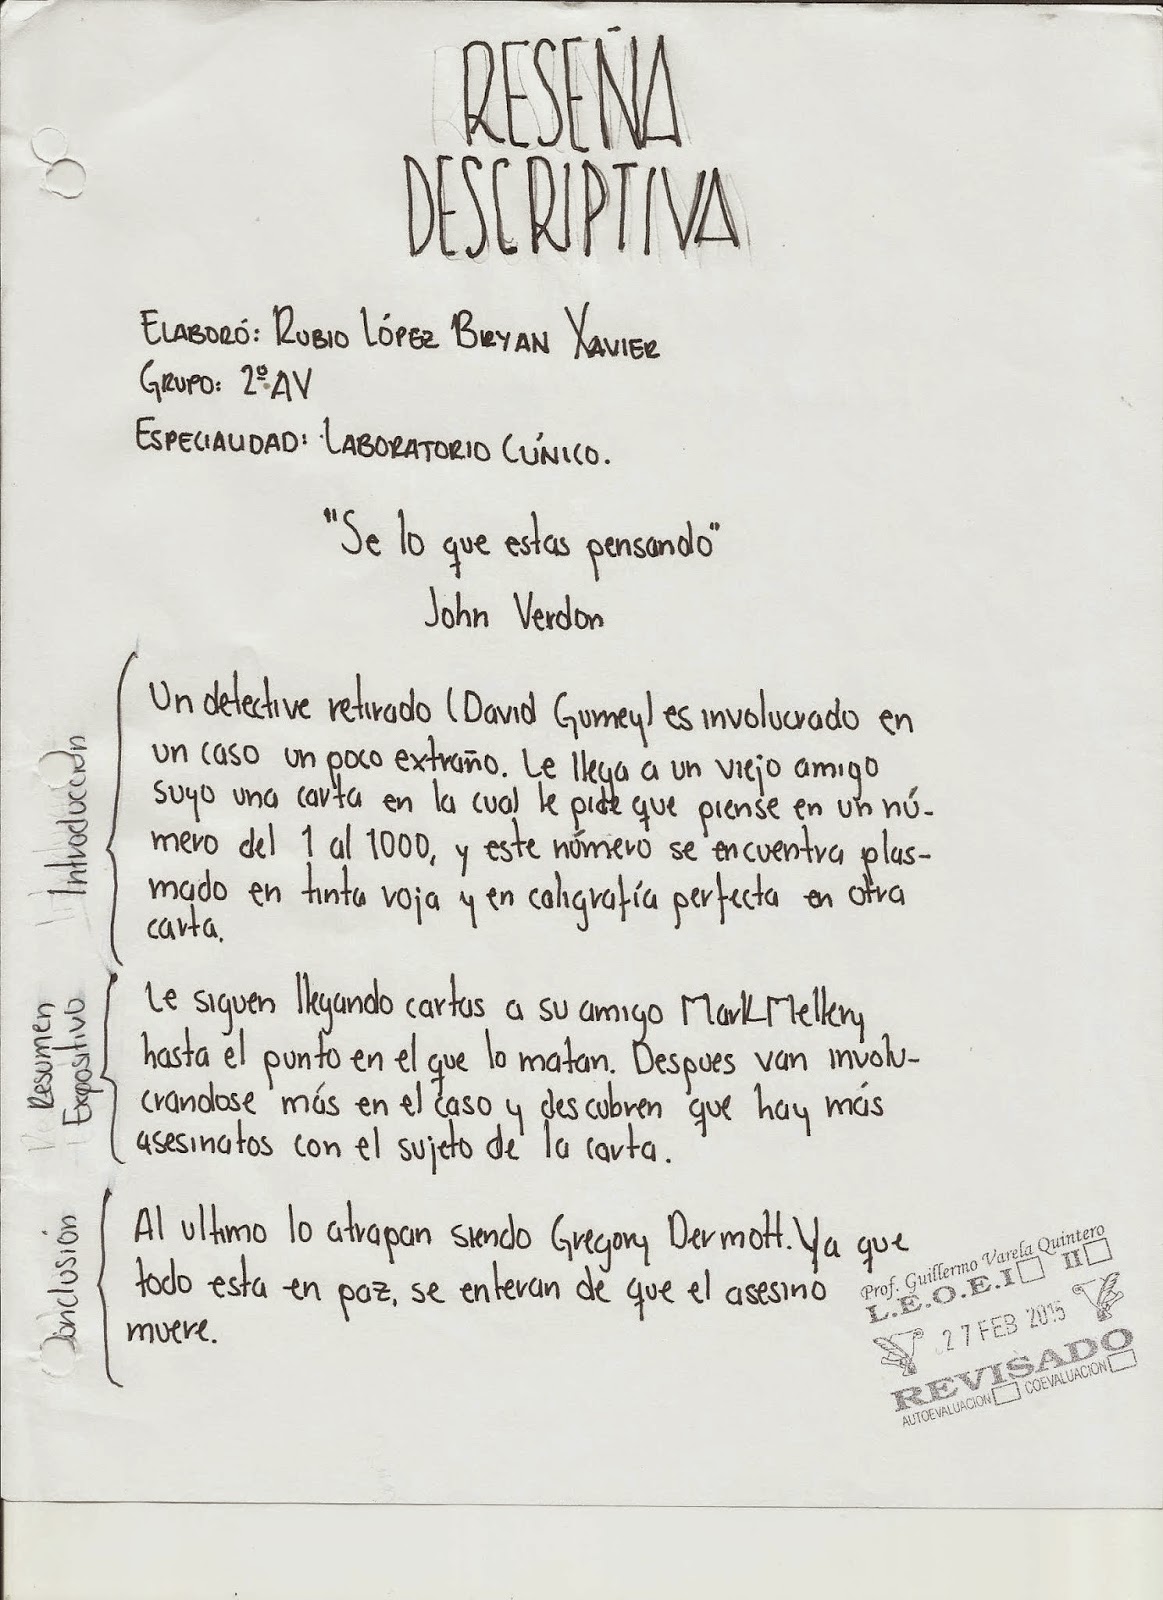 RESEÑA
DESCRIPTIVA
ELABORÓ: RUBIO LÓPEZ BRYAN XAVIER
GRUPO: 2º AV
ESPECIALIDAD: LABORATORIO CLÍNICO.
"Se lo que estas pensando"
John Verdon
Introducción
Un detective retirado (David Gurney) es involucrado en
un caso un poco extraño. Le llega a un viejo amigo
suyo una carta en la cual le pide que piense en un nú-
mero del 1 al 1000, y este número se encuentra plas-
mado en tinta roja y en caligrafía perfecta en otra
carta.
Resumen
Expositivo
Le siguen llegando cartas a su amigo Mark Mellery
hasta el punto en el que lo matan. Despues van involu-
crandose más en el caso y descubren que hay más
asesinatos con el sujeto de la carta.
Conclusión
Al ultimo lo atrapan siendo Gregory Dermott. Ya que
todo esta en paz, se enteran de que el asesino
muere.
Prof. Guillermo Varela Quintero
L.E.O.E.I II
27 FEB 2015
REVISADO
AUTOEVALUACION COEVALUACION